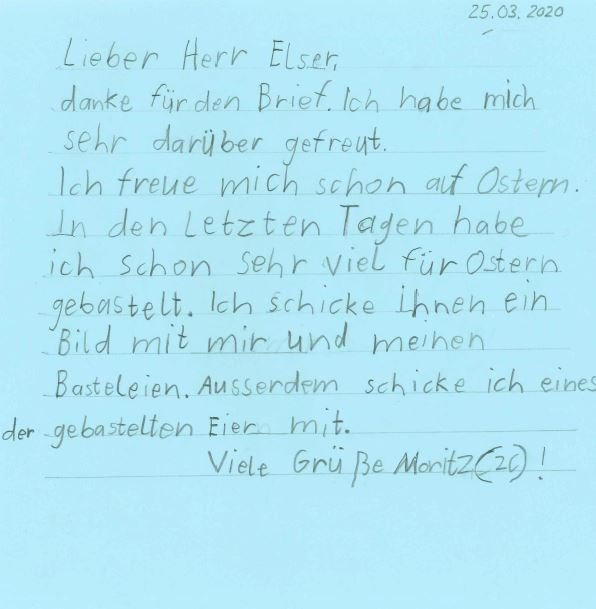 25.03.2020
Lieber Herr Elser,
danke für den Brief. Ich habe mich
sehr darüber gefreut.
Ich freue mich schon auf Ostern.
In den Letzten Tagen habe
ich schon sehr viel für Ostern
gebastelt. Ich schicke ihnen ein
Bild mit mir und meinen
Basteleien. Ausserdem schicke ich eines
der gebastelten Eier mit.
Viele Grüße Moritz (2c)!